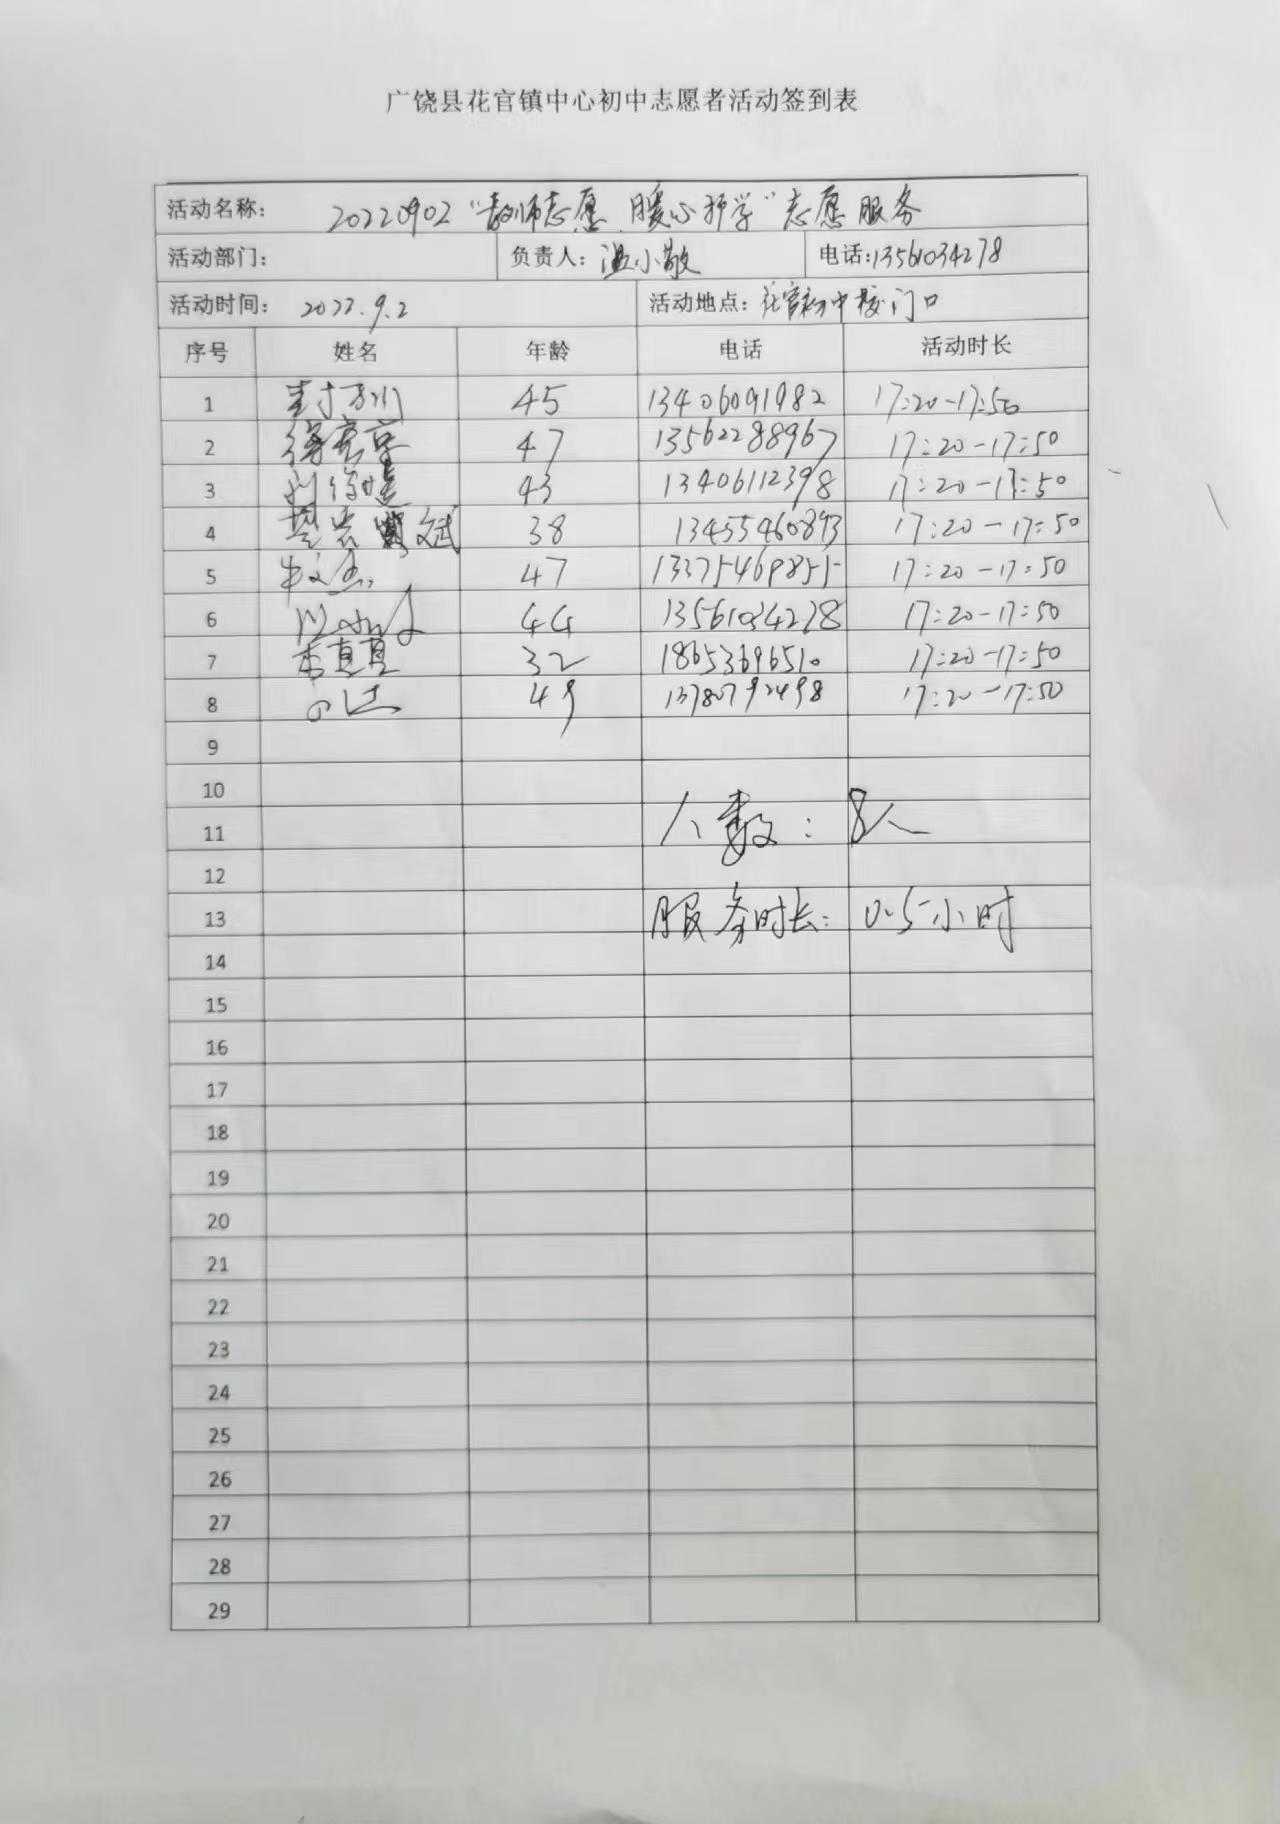 广饶县花官镇中心初中志愿者活动签到表
活动名称: 20220902“教师志愿 暖心护学”志愿服务
活动部门: 负责人: 温小敬 电话:13561034278
活动时间: 2022.9.2 活动地点: 花官初中校门口
序号 姓名 年龄 电话 活动时长
1 45 13406091982 17:20-17:50
2 47 13562288967 17:20-17:50
3 43 13406112398 17:20-17:50
4 38 13455460893 17:20-17:50
5 47 13375469855 17:20-17:50
6 44 13561034278 17:20-17:50
7 李真真 32 18653696510 17:20-17:50
8 49 13780792498 17:20-17:50
9
10
人数: 8人
11
12
服务时长: 0.5小时
13
14
15
16
17
18
19
20
21
22
23
24
25
26
27
28
29